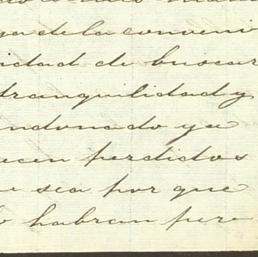 ga de la conveni
idad de buscar
tranquilidad y
ndonado ya
ecen perdidos
e sea por que
habran pere